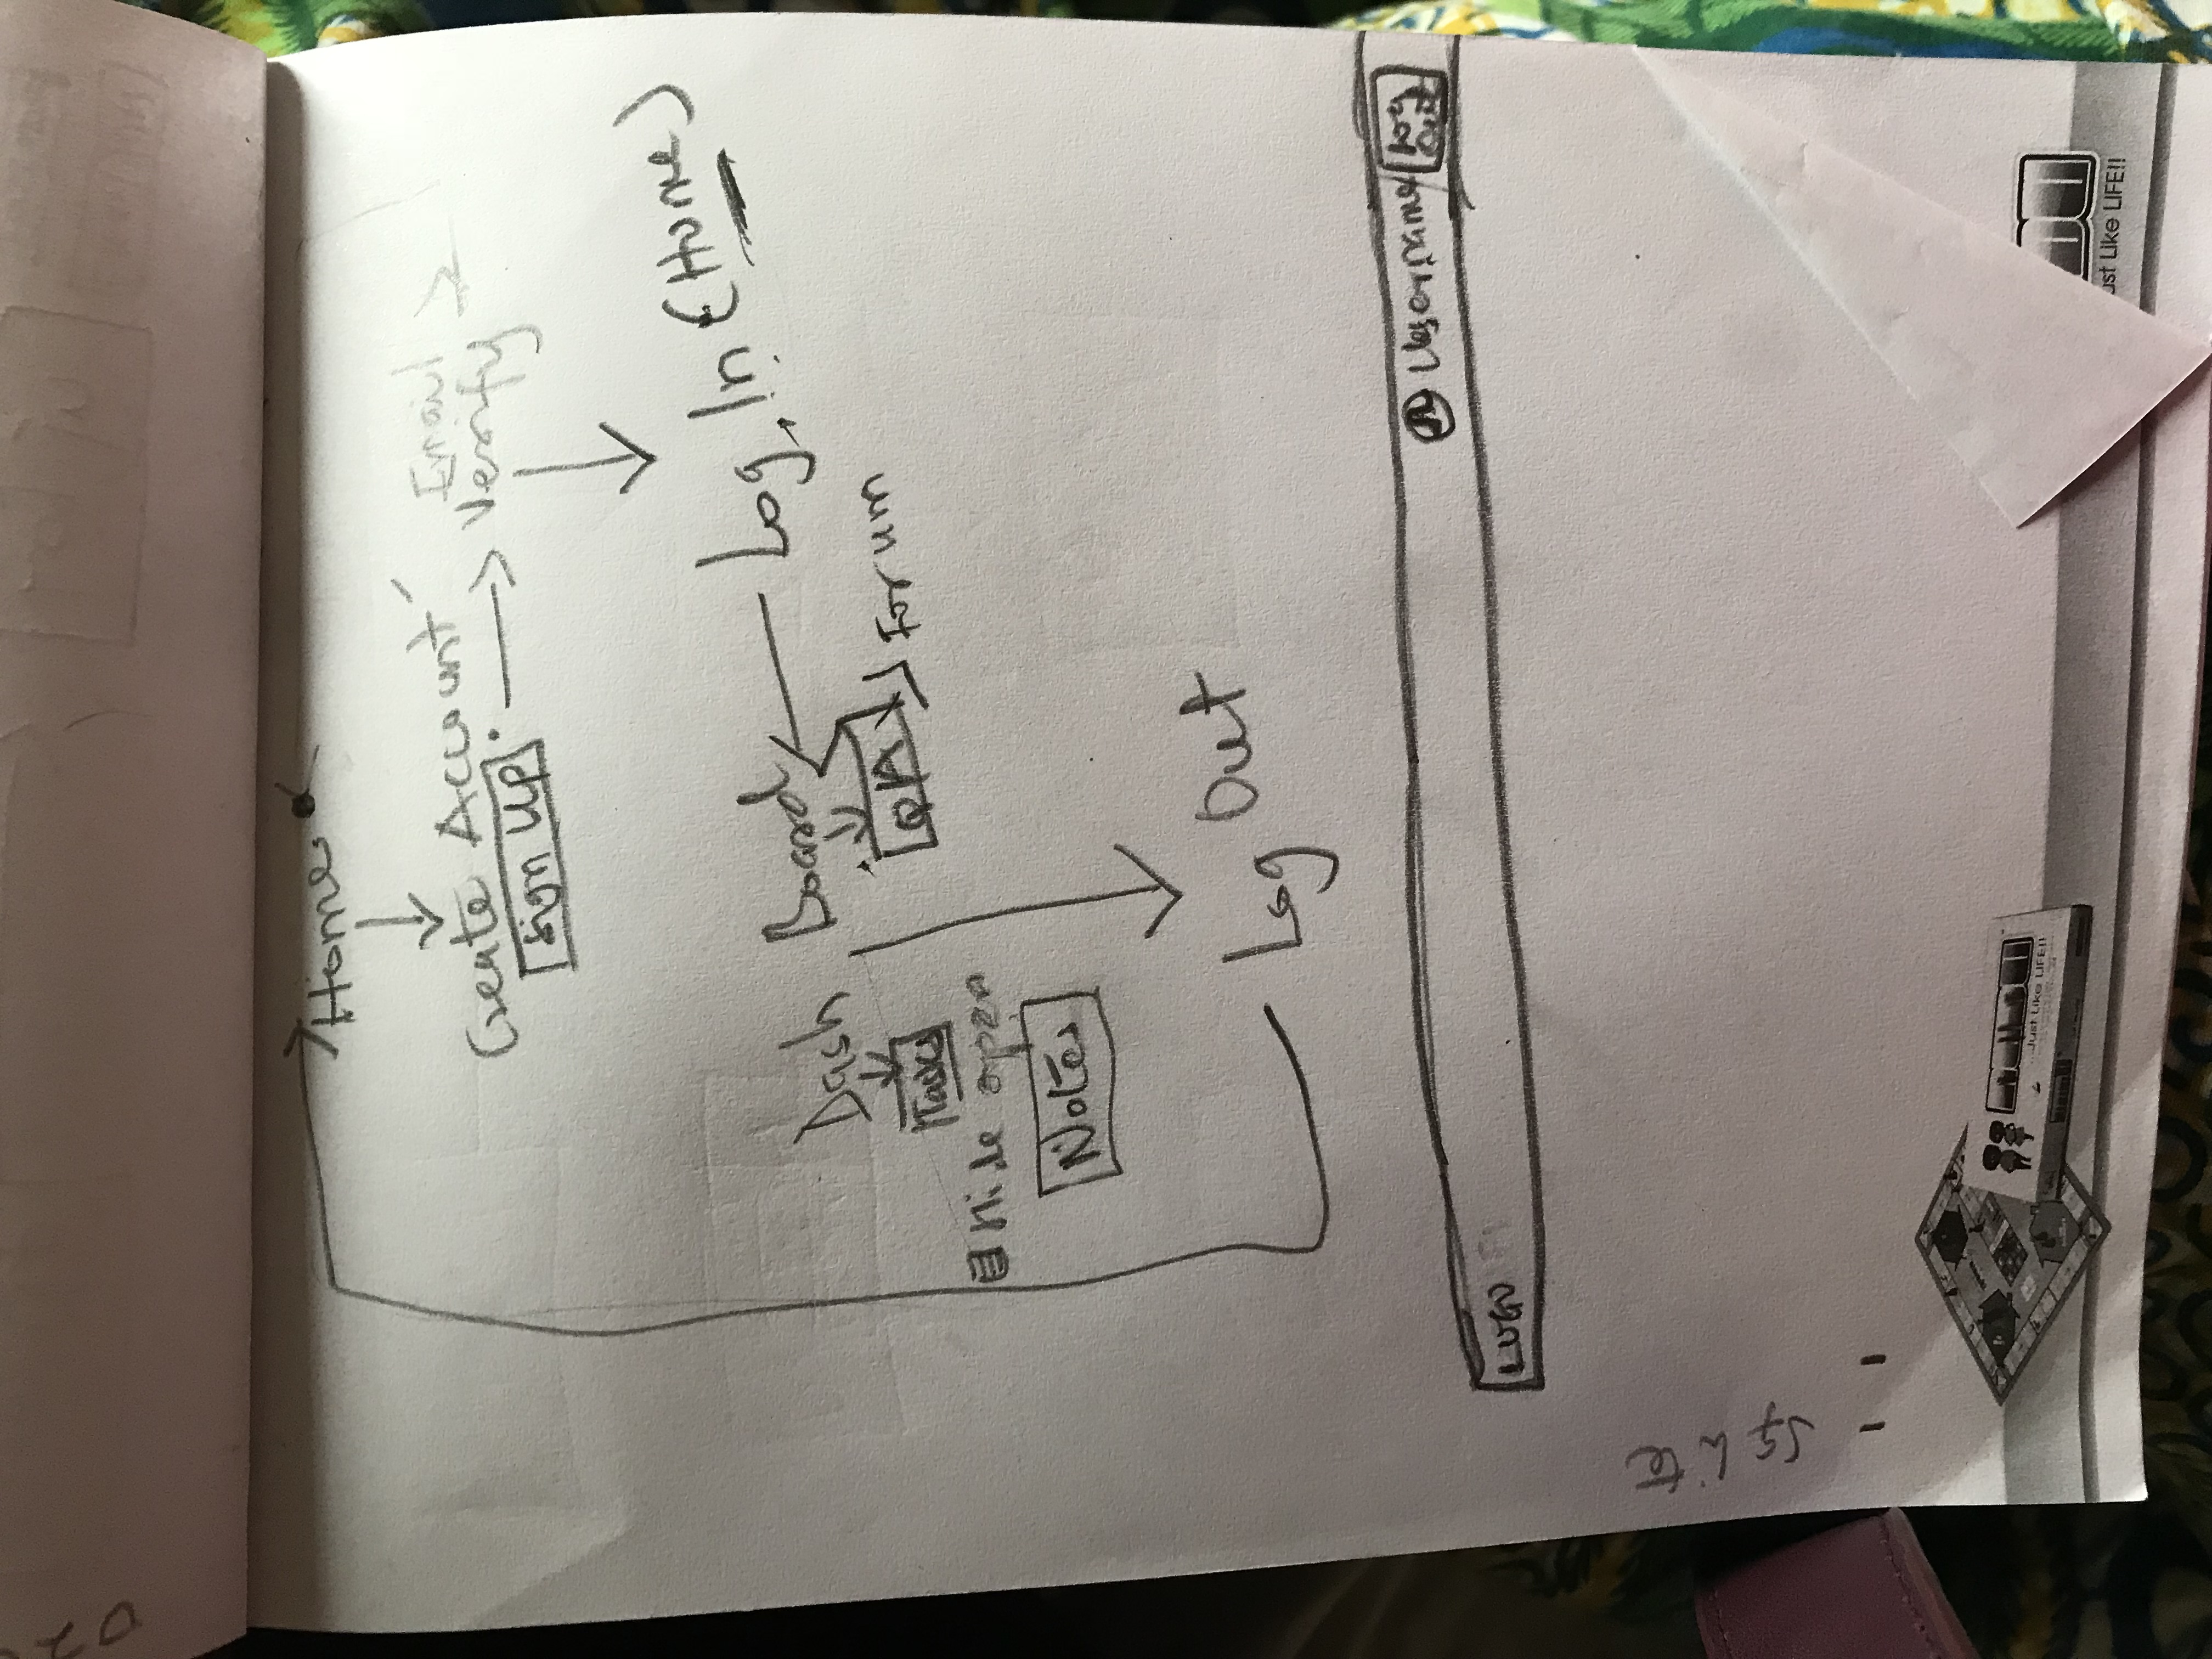 Home
Create Account
Sign Up
Email
Verify
Log In (Home)
Dash Board
Tasks
Q/A
Forum
Hide open
Notes
Log Out
LOGO
Username
Log
Out
...Just Like LIFE!!
ust Like LIFE!!